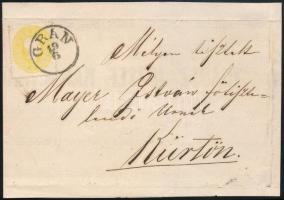 GRAN
19
6
Mélyen tisztelt
Mayer István főtiszte-
lendő Urnak
Kürtön.